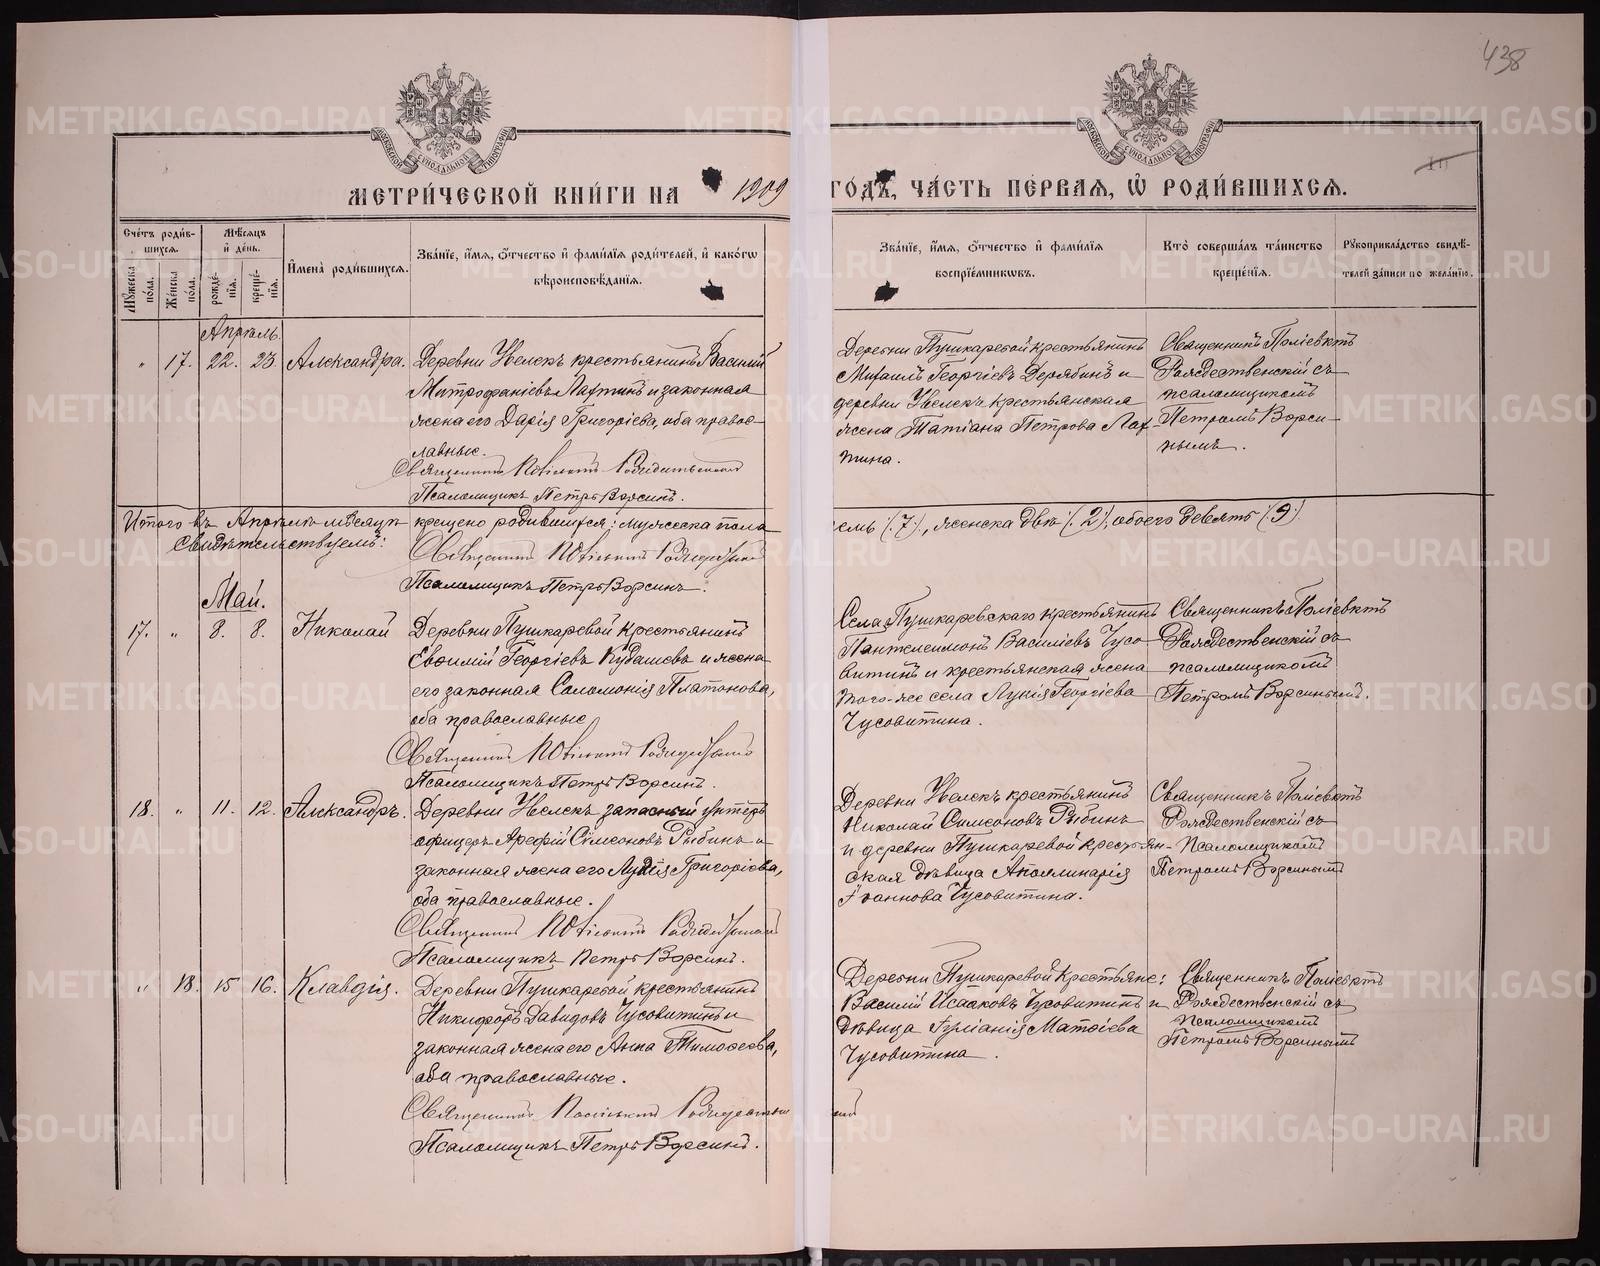 438
МОСКОВСКОЙ СѴНОДАЛЬНОЙ ТИПОГРАФІИ
МОСКОВСКОЙ СѴНОДАЛЬНОЙ ТИПОГРАФІИ
МЕТРИ́ЧЕСКОЙ КНИ́ГИ НА 1909
ГО́ДЪ, ЧА́СТЬ ПЕ́РВАЯ, Ѡ҆ РОДИ́ВШИХСЯ.
Сче́тъ роди́в-
шихся.
Мꙋ́жеска
по́ла.
Же́нска
по́ла.
Мѣ́сяцъ
и҆ де́нь.
рожде́-
нія.
креще́-
нія.
И҆мена̀ роди́вшихся.
Зва́ніе, и҆́мя, ѻ҆́тчество и҆ фами́лія роди́телей, и҆ како́гѡ
вѣроисповѣ́данія.
Зва́ніе, и҆́мя, ѻ҆́тчество и҆ фами́лія
воспріе́мниковъ.
Кто̀ соверша́лъ та́инство
креще́нія.
Рꙋкоприкла́дство свидѣ́-
телей за́писи по жела́нію.
Апрѣль.
" 17. 22. 23. Александра.
Деревни Увелекъ крестьянинъ Василій
Митрофаніевъ Лахтинъ и законная
жена его Дарія Григоріева, оба правос-
лавные.
Священникъ Поліевктъ Рождественскій
Псаломщикъ Петръ Ворсинъ.
Деревни Пушкаревой крестьянинъ
Михаилъ Георгіевъ Дерябинъ и
деревни Увелекъ крестьянская
жена Татіана Петрова Лах-
тина.
Священникъ Поліевктъ
Рождественскій съ
псаломщикомъ
Петромъ Ворси-
нымъ.
Итого въ Апрѣлѣ мѣсяцѣ крещено родившихся: мужеска пола
емь (.7.), женска двѣ (. 2.), обоего девять (9).
Свидѣтельствуемъ:
Священникъ Поліевктъ Рождественскій
Псаломщикъ Петръ Ворсинъ.
Май.
17. " 8. 8. Николай
Деревни Пушкаревой крестьянинъ
Евѳимій Георгіевъ Кудашевъ и жена
его законная Соломонія Платонова,
оба православные
Священникъ Поліевктъ Рождественскій
Псаломщикъ Петръ Ворсинъ.
Села Пушкаревскаго крестьянинъ
Пантелеимонъ Василіевъ Чусо-
витинъ и крестьянская жена
того-же села Лукія Георгіева
Чусовитина.
Священникъ Поліевктъ
Рождественскій съ
псаломщикомъ
Петромъ Ворсинымъ.
18. " 11. 12. Александръ.
Деревни Увелекъ запасный унтеръ
офицеръ Арефій Симеоновъ Рыбинъ и
законная жена его Лидія Григоріева,
оба православные.
Священникъ Поліевктъ Рождественскій
Псаломщикъ Петръ Ворсинъ.
Деревни Увелекъ крестьянинъ
Николай Симеоновъ Рыбинъ
и деревни Пушкаревой крестьян-
ская дѣвица Аполлинарія
Іоаннова Чусовитина.
Священникъ Поліевктъ
Рождественскій съ
Псаломщикомъ
Петромъ Ворсинымъ
" 18. 15 16. Клавдія.
Деревни Пушкаревой крестьянинъ
Никифоръ Давидовъ Чусовитинъ и
законная жена его Анна Тимоѳеева,
оба православные.
Священникъ Поліевктъ Рождественскій
Псаломщикъ Петръ Ворсинъ.
Деревни Пушкаревой Крестьяне:
Василій Исааковъ Чусовитинъ и
дѣвица Іуліанія Матѳіева
Чусовитина.
Священникъ Поліевктъ
Рождественскій съ
Псаломщикомъ
Петромъ Ворсинымъ
METRIKI.GASO-URAL.RU